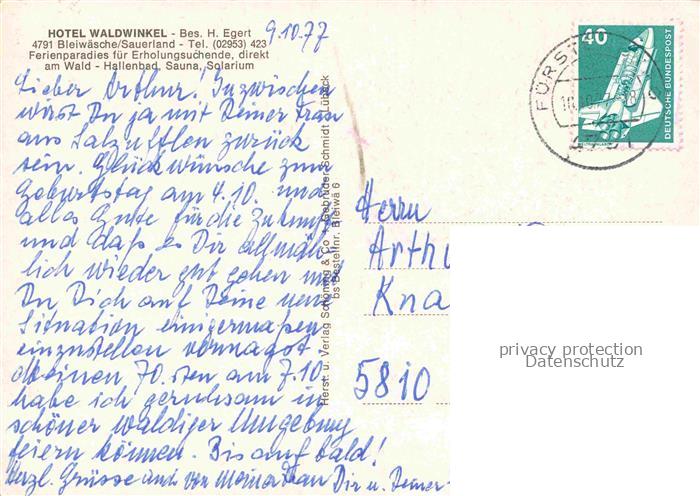 HOTEL WALDWINKEL - Bes. H. Egert
4791 Bleiwäsche/Sauerland - Tel. (02953) 423
Ferienparadies für Erholungsuchende, direkt
am Wald - Hallenbad, Sauna, Solarium
9.10.77
Lieber Arthur! Inzwischen
wirst Du ja mit Deiner Frau
aus Salzuflen zurück
sein. Glückwünsche zum
Geburtstag am 4.10. und
alles Gute für die Zukunft
und daß es Dir allmäh-
lich wieder gut gehen und
Du Dich auf Deine neue
Situation einigermaßen
einzustellen vermagst.
Meinen 70.sten am 7.10.
habe ich geruhsam in
schöner waldiger Umgebung
feiern können. Bis auf bald!
Herzl. Grüsse auch von meiner Frau Dir u. Deiner
Herst. u. Verlag Schöning & Co + Gebrüder Schmidt, Lübeck
bs Bestellnr. Bleiwä 6
40
DEUTSCHE BUNDESPOST
FÜRST
Herrn
Arth
Kna
5810
privacy protection
Datenschutz